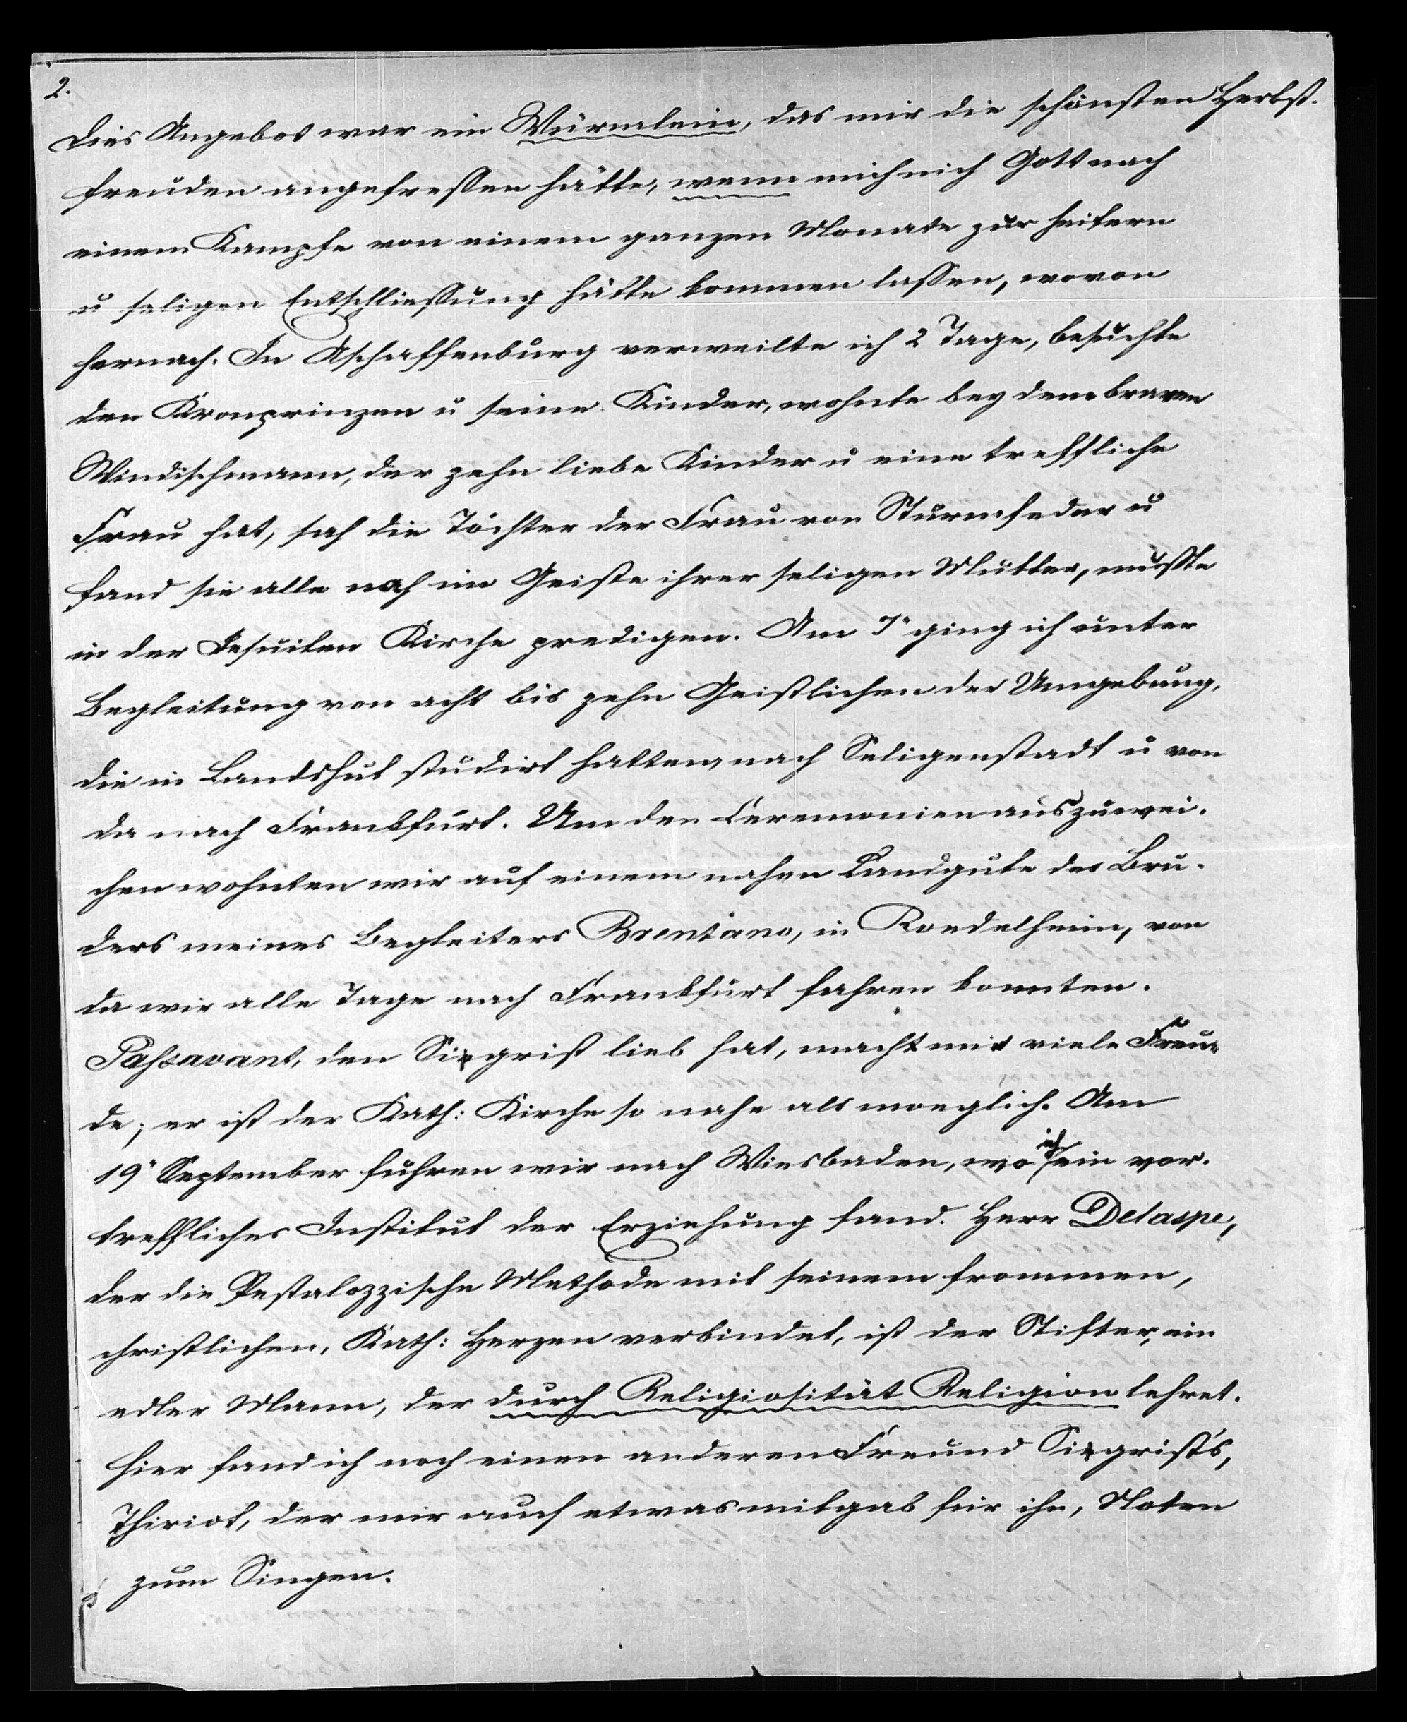 2.
Dies Angebot war ein Würmlein, das mir die schönsten Herbst-
freuden angefressen hätte, wenn mich nich Gott nach
einem Kampfe von einem ganzen Monate zur heitern
u seligen Entschliessung hätte kommen lassen, wovon
hernach. In Aschaffenburg verweilte ich 2 Tage, besuchte
den Kronprinzen u seine Kinder, wohnte bey dem braven
Windischmann, der zehn liebe Kinder u eine treffliche
Frau hat, sah die Töchter der Frau von Sturmfeder u
fand sie alle noch im Geiste ihrer seligen Mutter, musste
in der Jesuiten Kirche predigen. Am 7" ging ich unter
Begleitung von acht bis zehn Geistlichen der Umgebung,
die in Landshut studirt hatten, nach Seligenstadt u von
da nach Frankfurt. Um den Ceremonien auszuwei-
chen wohnten wir auf einem nahen Landgute des Bru-
ders meines Begleiters Brentano, in Roedelheim, von
da wir alle Tage nach Frankfurt fahren konnten.
Passavant, den Siegrist lieb hat, macht mir viele Freu-
de; er ist der Kath: Kirche so nahe als moeglich. Am
19" September fuhren wir nach Wiesbaden, wo ich ein vor-
treffliches Institut der Erziehung fand. Herr Delaspe,
der die Pestalozzische Methode mit seinem frommen,
christlichen, Kath: Herzen verbindet, ist der Stifter, ein
edler Mann, der durch Religiosität Religion lehret.
Hier fand ich noch einen anderen Freund Siegrist's,
Thiriot, der mir auch etwas mitgab für ihn, Noten
zum Singen.